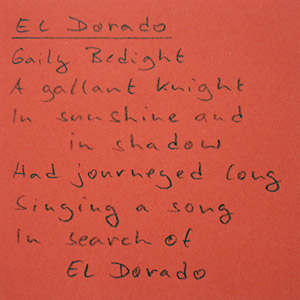 El Dorado
Gaily Bedight
A gallant knight
In sunshine and
in shadow
Had journeyed long
Singing a song
In search of
El Dorado